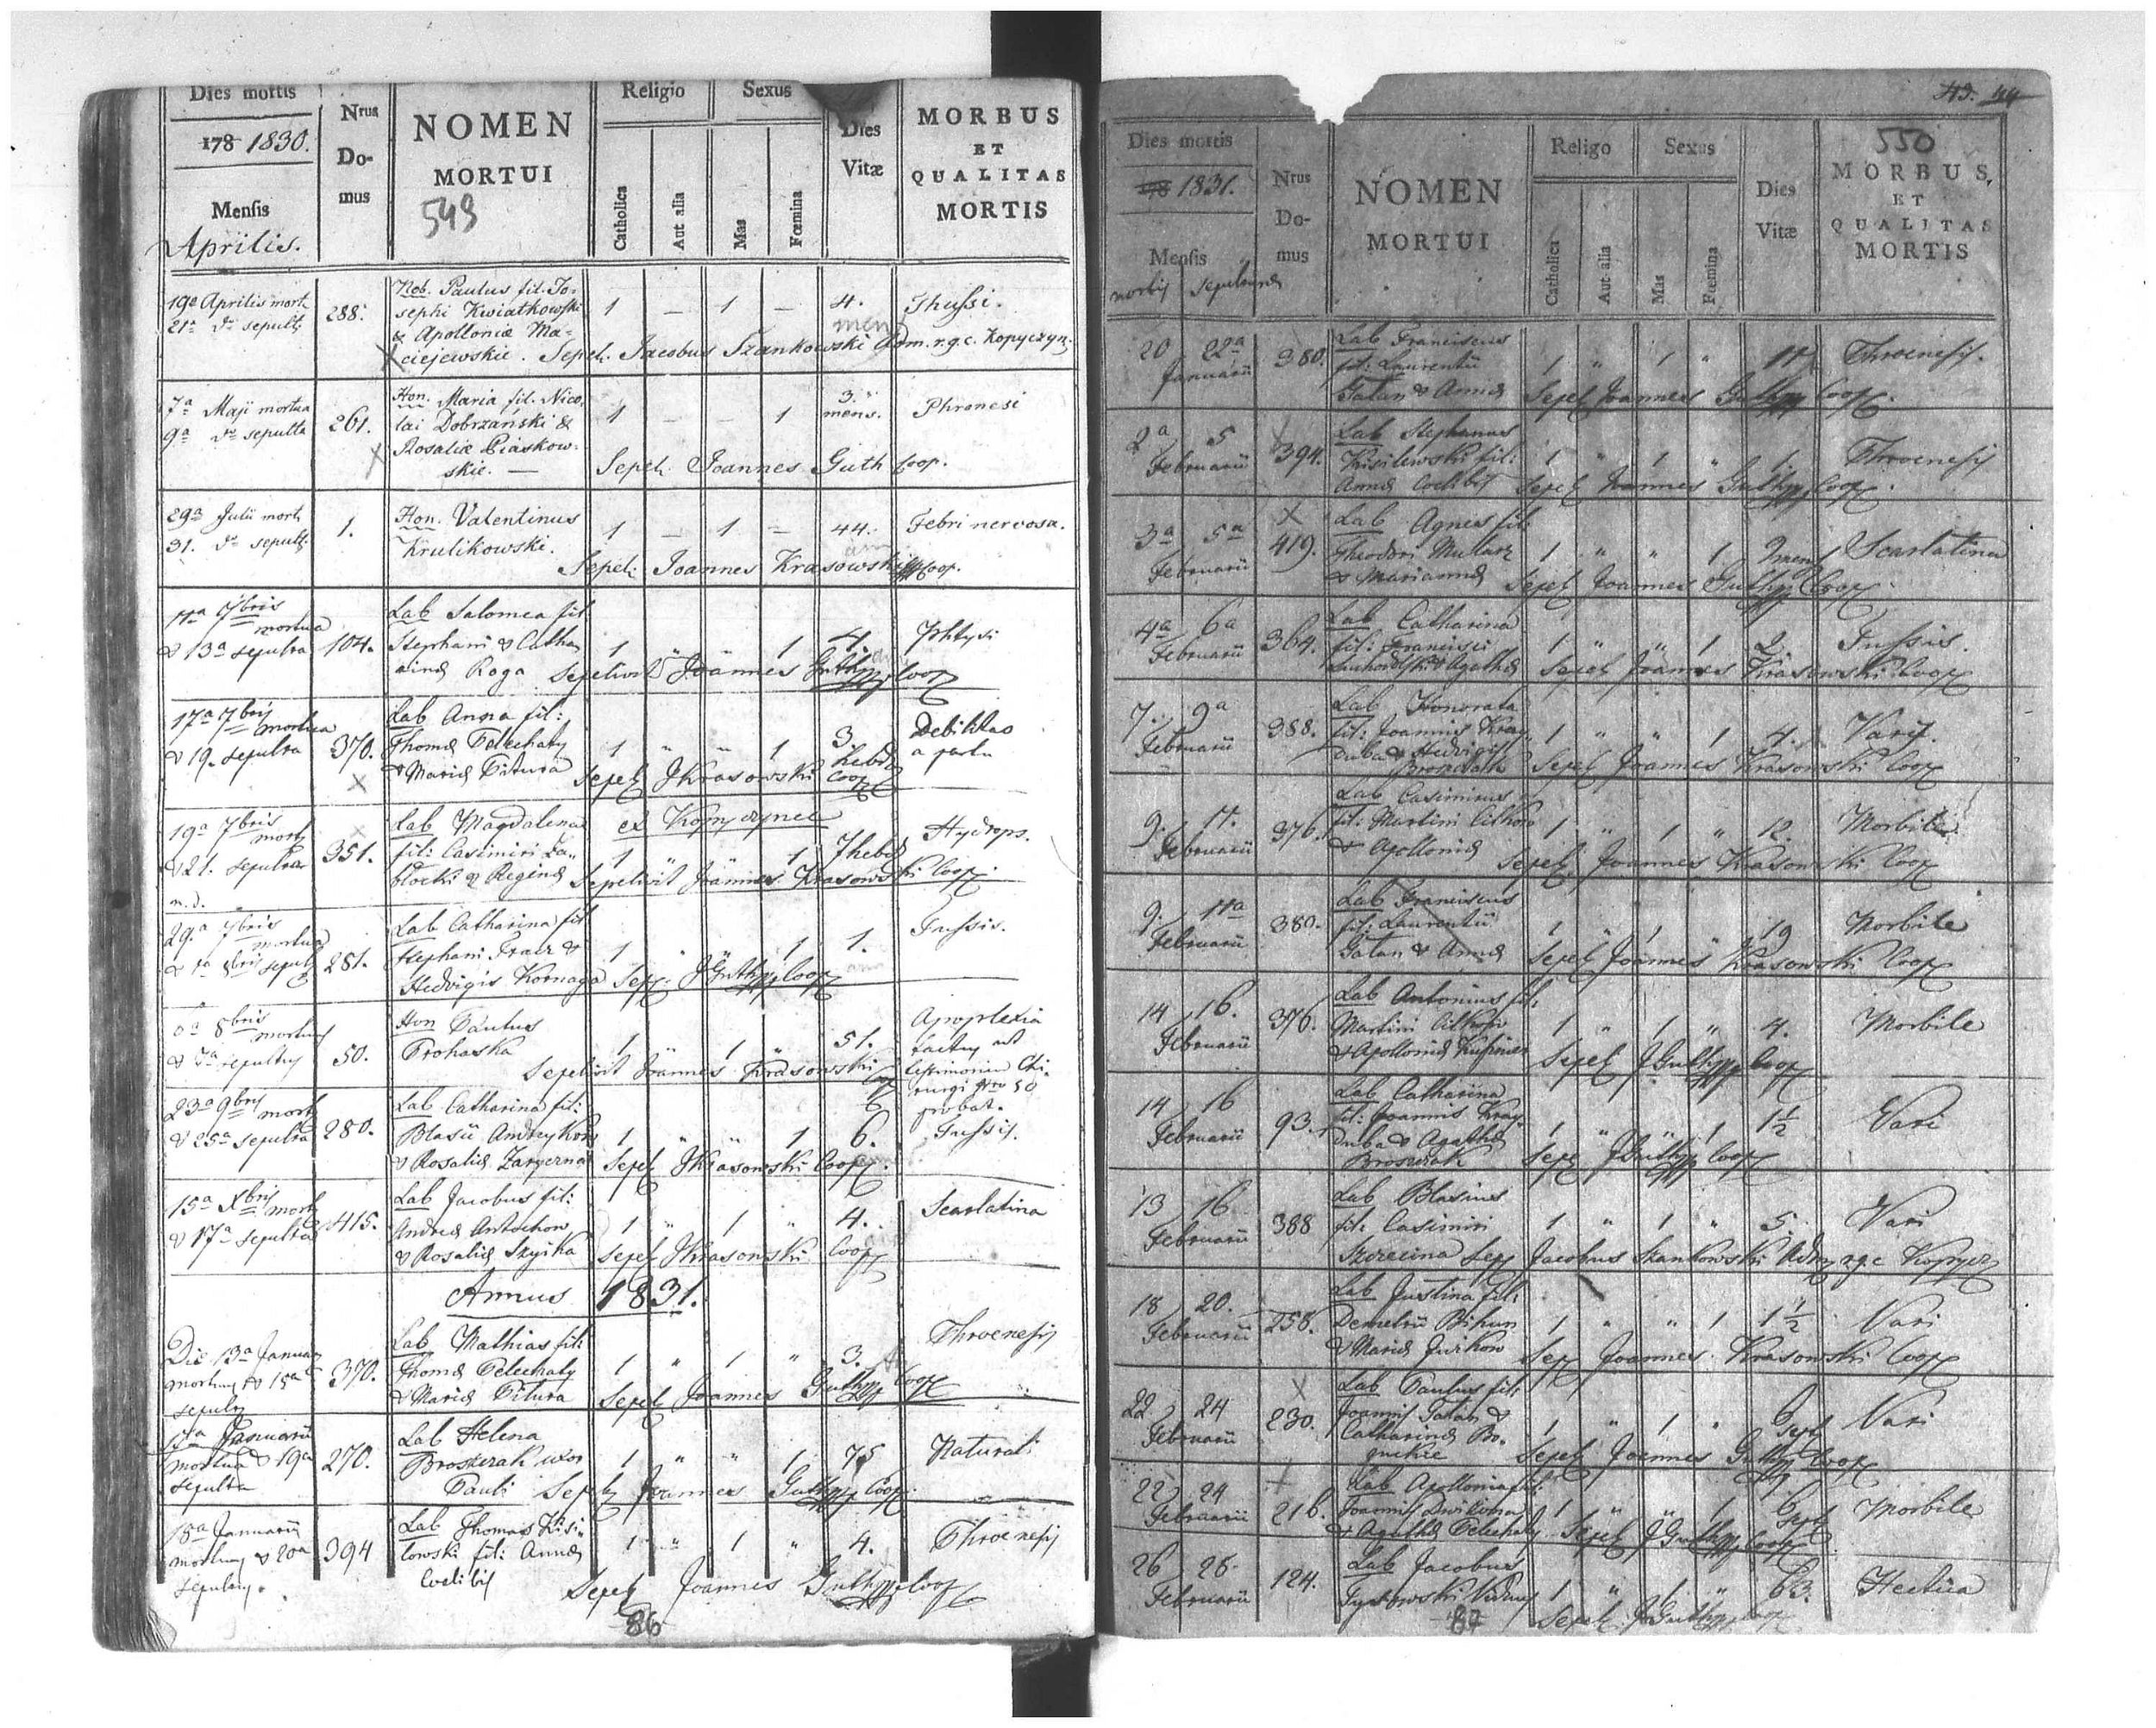 Dies mortis
178 1830.
Mensis
Aprilis.
Nrus
Do-
mus
NOMEN
MORTUI
549
Religio
Catholica
Aut alia
Sexus
Mas
Fœmina
Dies
Vitæ
MORBUS
ET
QUALITAS
MORTIS
19a Aprilis mort.
21a do sepult:
288.
Nob. Paulus fil. Jo-
sephi Kwiatkowski
& Apolloniæ Ma-
ciejewskie.
1 — 1 — 4.
men
Thussi.
Sepel: Jacobus Szankowski Adm. r.g.c. Kopyczyn.
7a Maji mortua
9a do sepulta
261.
Hon. Maria fil. Nico
lai Dobrzański &
Rosaliæ Piaskow-
skie. —
1 — — 1 3.
mens.
Phronesi
Sepel. Joannes Guth Coop.
29a Julii mort.
31. do sepult:
1.
Hon. Valentinus
Krulikowski.
1 — 1 — 44.
Febri nervosa.
Sepel: Joannes Krasowski Coop.
11a 7bris
mortua
& 13a sepulta
104.
Lab Salomea fil
Stephani & Catha
rinæ Roga
1 " " 1 4.
Phtysi
Sepelivit Joannes Guth Coop
17a 7bris
mortua
& 19. sepulta
370.
Lab Anna fil:
Thomæ Pelechaty
& Mariæ Pitura
1 " " 1 3.
hebd
Debilitas
a partu
Sepel JKrasowski Coop
19a 7bris
mort
& 21. sepulta
351.
Lab Magdalena
fil: Casimiri Za-
blocki & Reginæ
ex Kopyczynce
1 1 7 hebd
Hydrops.
Sepelivit Joannes Krasowski Coop.
n.d.
29.a 7bris
mortua
& 1a 8bris sepul
281.
Lab Catharina fil
Stephani &
Hedvigis Kornaga
1 " " 1 1.
Tussis.
Sep. JGuth Coop
8bris
mortuus
& 7a sepultus
50.
Hon Paulus
Prohaska
1 " 1 " 51.
Apoplexia
factus ad
testimonium Chi-
rurgi Nro 50
probat.
Sepelivit Joannes Krasowski Coop
23a 9bris mort
& 25a sepulta
280.
Lab Catharina fil:
Blasii Andreykow
& Rosaliæ
1 " " 1 6.
Tussis.
Sepel JKrasowski Coop.
15a Xbris mort
& 17a sepultus
415.
Lab Jacobus fil:
Andreæ Antochow
& Rosaliæ
1 " 1 " 4.
Scarlatina
Sepel JKrasowski Coop
Annus 1831.
Die 13a Januar
mortuus & 15a
sepult
370.
Lab Mathias fil:
Thomæ Pelechaty
& Mariæ Pitura
1 " 1 " 3.
Throenesis
Sepel Joannes Guth Coop
Januarii
mortua & 19a
sepulta
270.
Lab Helena
Broszczak uxor
Pauli
1 " " 1 75
Naturali
Sepel Joannes Guth Coop.
18a Januarii
mortuus & 20a
sepultus.
394
Lab Thomas Kisi-
lowski fil: Annæ
Coelibis
1 " 1 " 4.
Throenesis
Sepel Joannes Guth Coop
86
43. 44
Dies mortis
178 1831.
Mensis
morbis sepultura
Nrus
Do-
mus
NOMEN
MORTUI
Religo
Catholica
Aut alia
Sexus
Mas
Fœmina
Dies
Vitæ
550
MORBUS,
ET
QUALITAS
MORTIS
20 22a
Januarii
380.
Lab Franciscus
fil: Laurentii
Gatan & Annæ
1 " 1 " 17
Throenesis.
Sepel Joannes Guth Coop.
2a 5
Februarii
394.
Lab Stephanus
Kisilewski fil:
Annæ Coelibis
1 " 1 " 1
Throenesis
Sepel Joannes Guth Coop.
3a 5a
Februarii
419.
Lab Agnes fil:
Theodori Mularz
& Mariannæ
1 " " 1 9 men
Scarlatina
Sepel Joannes Guth Coop
4a 6a
Februarii
364.
Lab Catharina
fil: Francisci
& Agathæ
1 " " 1 2.
Tussis.
Sepel Joannes Krasowski Coop
7. 9a
Februarii
388.
Lab Honorata
fil: Joannis Kray
duba & Hedvigis
Broszczak
1 " " 1 4.
Varis.
Sepel Joannes Krasowski Coop
9. 11.
Februarii
376.
Lab Casimirus
fil: Martini Cithow
& Apolloniæ
1 " 1 " 12.
Morbile
Sepel Joannes Krasowski Coop
9. 11a
Februarii
380.
Lab Franciscus
fil: Laurentii
Gatan & Annæ
1 " 1 " 19
Morbile
Sepel Joannes Krasowski Coop
14 16.
Februarii
376.
Lab Antonius fil:
Martini Cithow
& Apolloniæ
1 " 1 " 4.
Morbile
Sepel JGuth Coop
14 16
Februarii
93.
Lab Catharina
fil: Joannis Kray-
duba & Agathæ
Broszczak
1 " " 1 1½
Vari
Sepe JGuth Coop
13 16
Februarii
388
Lab Blasius
fil: Casimiri
1 " 1 " 5
Vari
Sep Jacobus Szankowski Adm r.g.c Kopycz
18 20.
Februarii
258.
Lab Justina fil:
Demetrii Bihun
& Mariæ Jurkow
1 " " 1 1½
Vari
Sep Joannes Krasowski Coop
22 24
Februarii
230.
Lab Paulus fil:
Joannis &
Catharinæ
1 " 1 "
Vari
Sepel Joannes Guth Coop
22 24
Februarii
216.
Lab Apollonia fil:
Joannis
& Agathæ Pelechaty
1 " " 1
Morbile
Sepel JGuth Coop.
26 28.
Februarii
124.
Lab Jacobus
Viduus
1 " 1 " 63.
Hectica
Sepel JGuth Coop
87